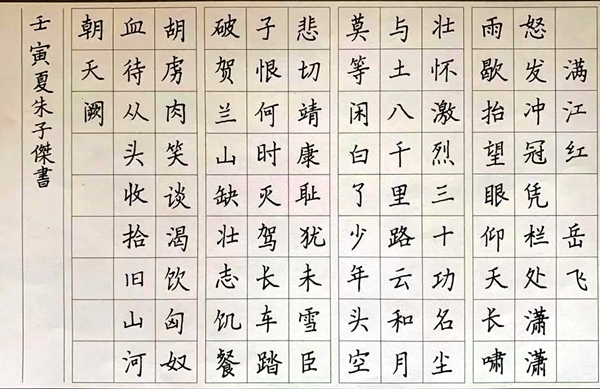 满江红 岳飞
怒发冲冠凭栏处潇潇
雨歇抬望眼仰天长啸
壮怀激烈三十功名尘
与土八千里路云和月
莫等闲白了少年头空
悲切靖康耻犹未雪臣
子恨何时灭驾长车踏
破贺兰山缺壮志饥餐
胡虏肉笑谈渴饮匈奴
血待从头收拾旧山河
朝天阙
壬寅夏朱子傑書